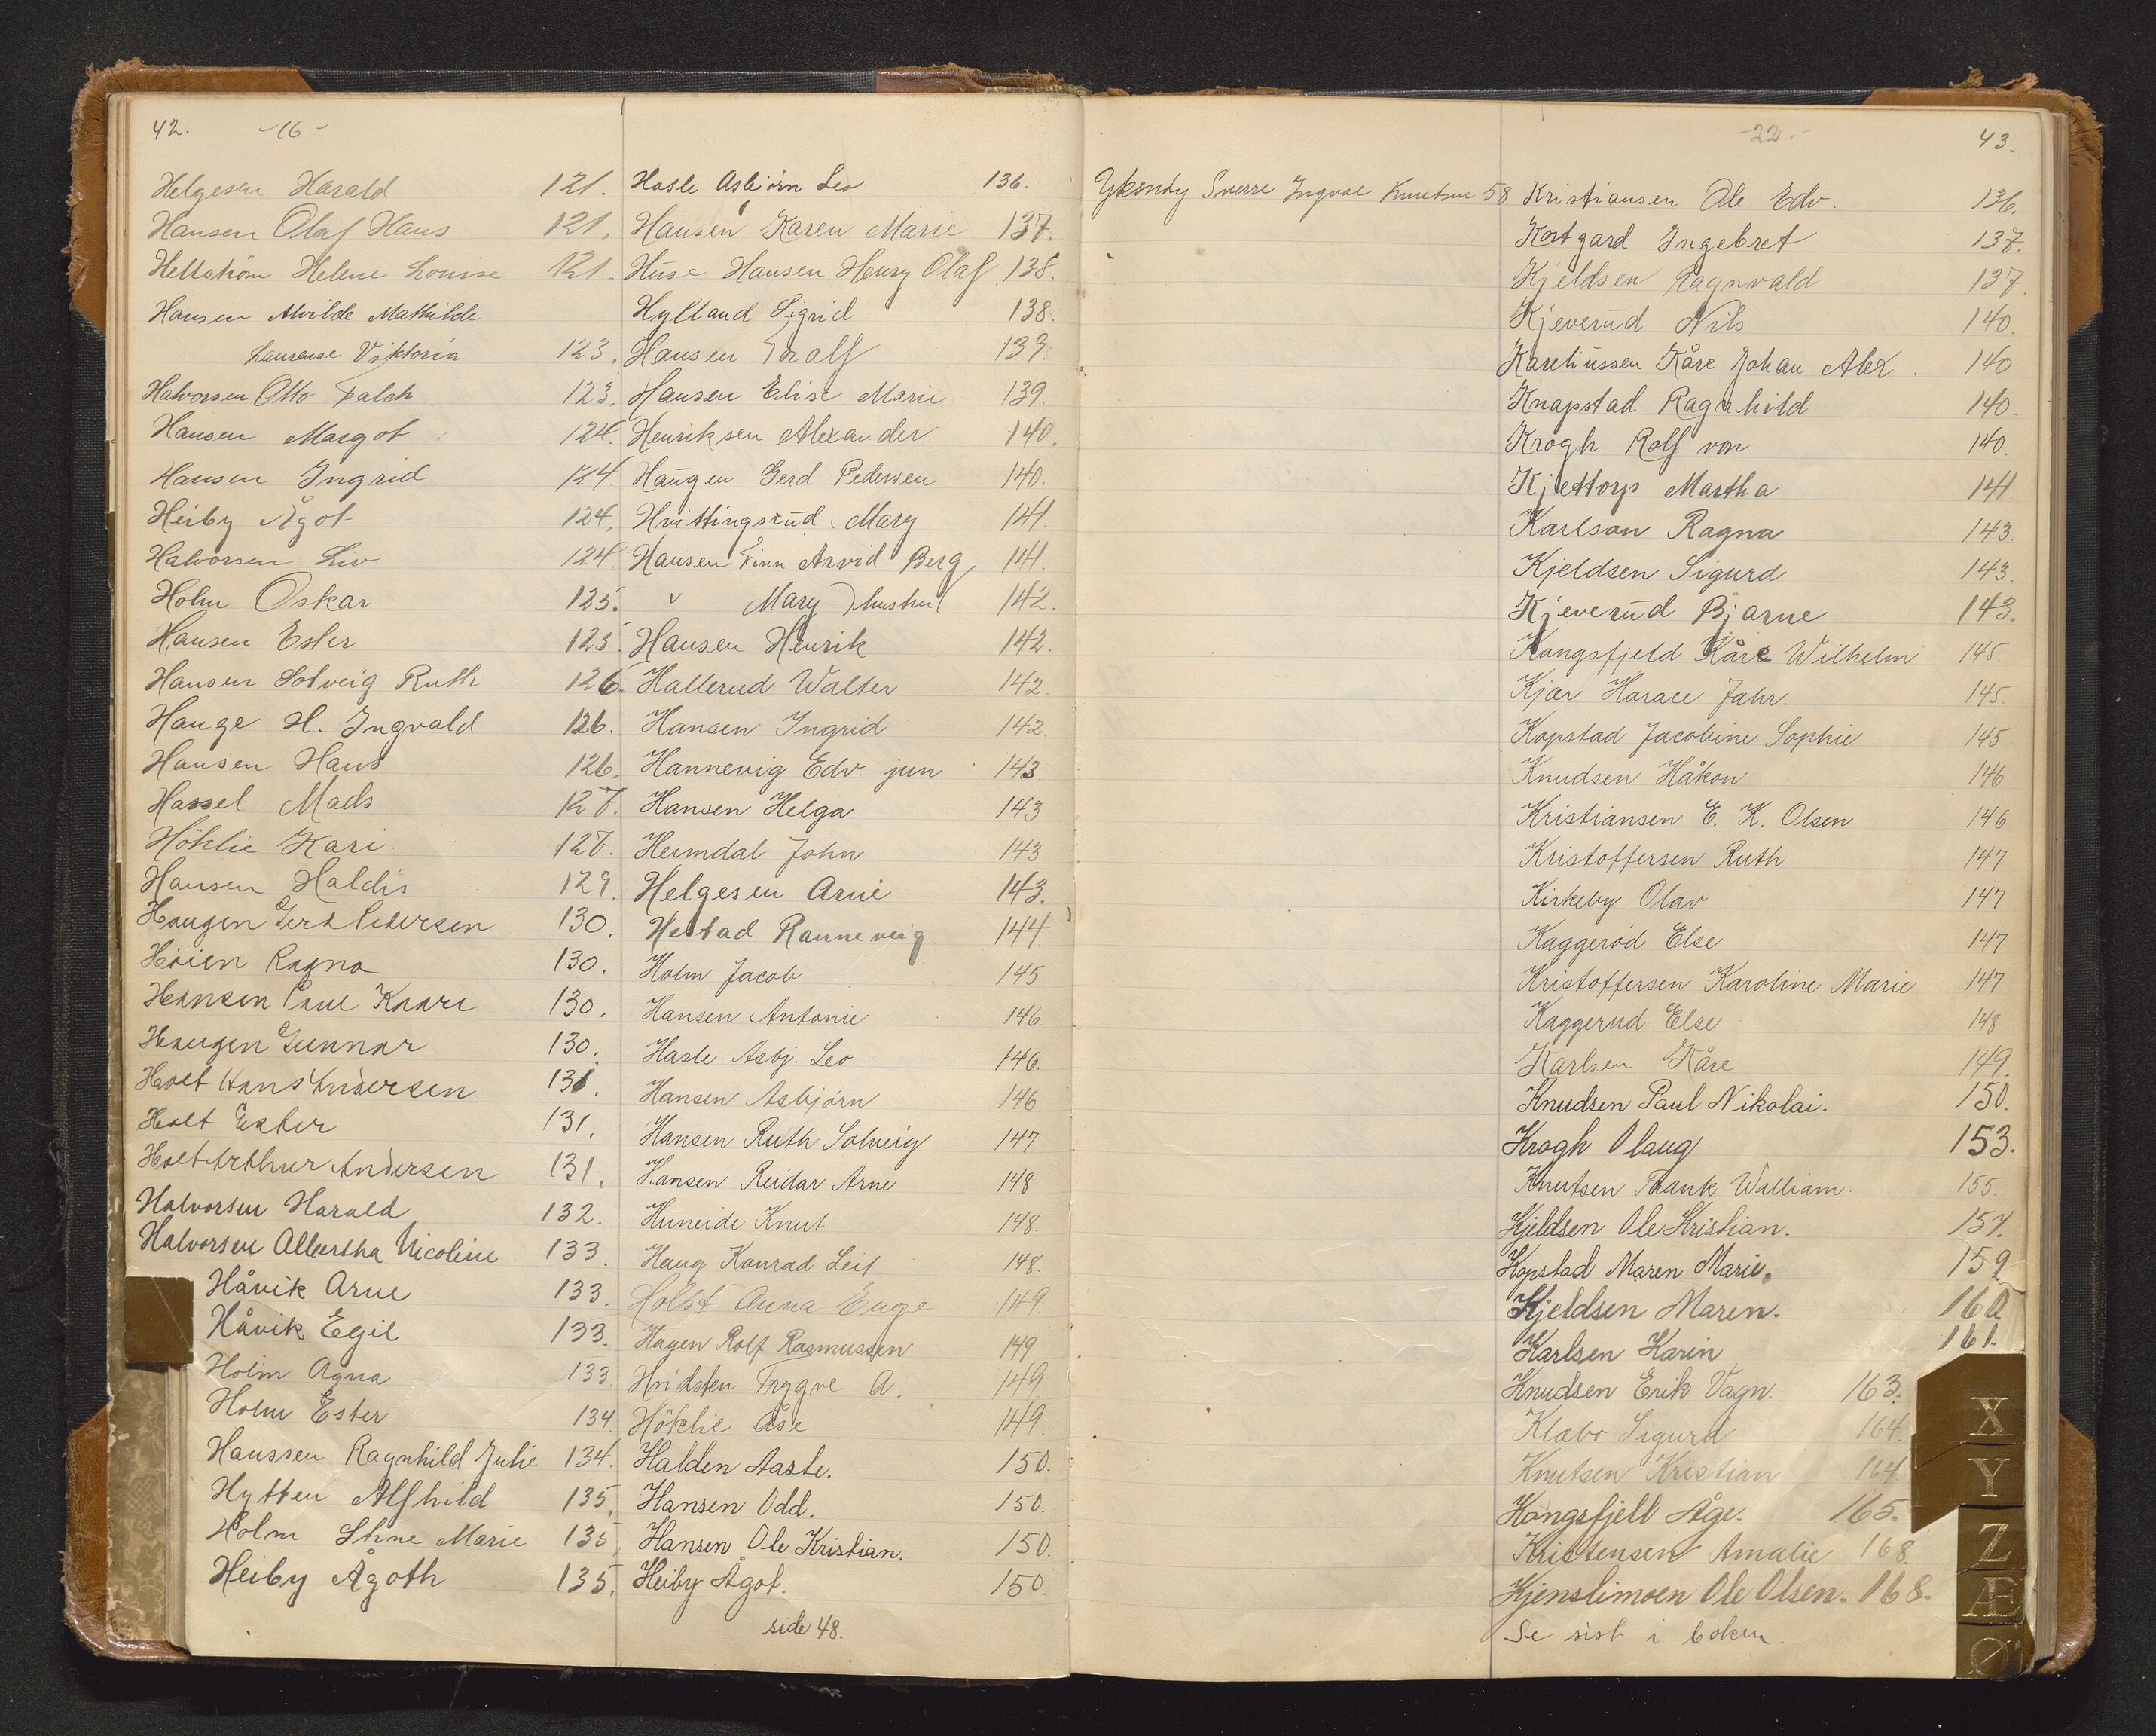 42. -16-
Helgesen Harald 121.
Hansen Olaf Hans 121.
Hellström Helene Louise 121.
Hansen Alvilde Mathilde
Laurense Viktoria 123.
Halvorsen Otto Falch 123.
Hansen Margot 124.
Hansen Ingrid 124.
Heiby Ågot 124.
Halvorsen Liv 124.
Holm Oskar 125.
Hansen Ester 125.
Hansen Solveig Ruth 126.
Hauge H. Ingvald 126.
Hansen Hans 126.
Hassel Mads 127.
Höklie Kari 127.
Hansen Haldis 129.
Haugen Gerd Pedersen 130.
Höien Ragna 130.
Hansen Paul Kaare 130.
Haugen Gunnar 130.
Holt Hans Andersen 131.
Holt Ester 131.
Holt Arthur Andersen 131.
Halvorsen Harald 132.
Halvorsen Albertha Nicoline 133.
Håvik Arne 133.
Håvik Egil 133.
Holm Agna 133.
Holm Ester 134
Hanssen Ragnhild Julie 134.
Hytten Alfhild 135.
Holm Stine Marie 135
Heiby Ågoth 135.
Hasle Asbjörn Leo 136.
Hansen Karen Marie 137.
Huse Hansen Henry Olaf 138.
Hylland Sigrid 138.
Hansen Tralf 139.
Hansen Elise Marie 139.
Henriksen Alexander 140.
Haugen Gerd Pedersen 140.
Hvittingsrud Mary 141.
Hansen Finn Arvid Berg 141.
v Mary hustru 142.
Hansen Henrik 142.
Hallerud Walter 142.
Hansen Ingrid 142
Hannevig Edv. jun 143
Hansen Helga 143
Heimdal John 143
Helgesen Arne 143.
Hestad Ranneveig 144
Holm Jacob 145
Hansen Antonie 146.
Hasle Asbj. Leo 146.
Hansen Asbjörn 146
Hansen Ruth Solveig 147
Hansen Reidar Arne 148
Huneide Knut 148.
Haug Konrad Leif 148.
Holst Anna Enge 149.
Hagen Rolf Rasmussen 149
Hvidsten Trygve A. 149
Höklie Åse 149.
Halden Aaste. 150.
Hansen Odd. 150.
Hansen Ole Kristian. 150.
Heiby Ågot. 150.
side 48.
-22- 43.
Yksnöy Sverre Ingvae Knutsen 58
Kristiansen Ole Edv. 136.
Kortgard Ingebret 137.
Kjeldsen Ragnvald 137.
Kjeverud Nils 140.
Kareliussen Kåre Johan Alex. 140
Knapstad Ragnhild 140.
Krogh Rolf von 140.
Kjettorp Martha 141
Karlson Ragna 143
Kjeldsen Sigurd 143
Kjeverud Bjarne 143.
Kongsfjeld Kåre Wilhelm 145
Kjær Horace Jahr. 145.
Kopstad Jacobine Sophie 145
Knudsen Håkon 146
Kristiansen E. K. Olsen 146
Kristoffersen Ruth 147
Kirkeby Olav 147
Kaggeröd Else 147
Kristoffersen Karoline Marie 147
Kaggerud Else 148
Karlsen Kåre 149.
Knudsen Paul Nikolai. 150.
Krogh Olaug 153.
Knutsen Thank William. 155.
Kjeldsen Ole Kristian. 157.
Kopstad Maren Marie. 159
Kjeldsen Maren. 160.
Karlsen Karin 161.
Knudsen Erik Vagn. 163.
Klabo Sigurd 164.
Knutsen Kristian 164
Kongsfjell Åge. 165.
Kristensen Amalie 168.
Kjenslimoen Ole Olsen. 168.
Se sist i boken.
X
Y
Z
Æ
Ø